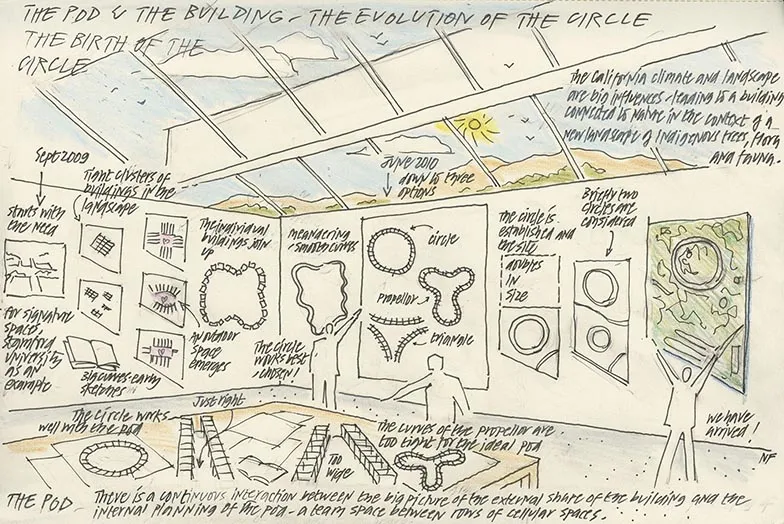 THE POD & THE BUILDING - THE EVOLUTION OF THE CIRCLE
THE BIRTH OF THE
CIRCLE
The California climate and landscape
are big influences - leading to a building
connected to nature in the context of a
new landscape of indigenous trees, flora
and fauna.
Sept 2009
starts with
the need
for signature
space,
Stanford
University
as an
example
Tight clusters of
buildings in the
landscape
Big curves - early
sketches
An outdoor
space
emerges
The individual
buildings join
up
meandering
- smaller curves
The circle
works best
- chosen!
June 2010
down to three
options
circle
propellor
triangle
The circle is
established and
the site
doubles
in
size
Briefly two
circles are
considered
we have
arrived!
NF
The circle works
well with the pod
Just right
Too
wide
The curves of the propellor are
too tight for the ideal pod
THE POD - There is a continuous interaction between the big picture of the external share of the building and the
internal planning of the pod - a team space between rows of cellular spaces.